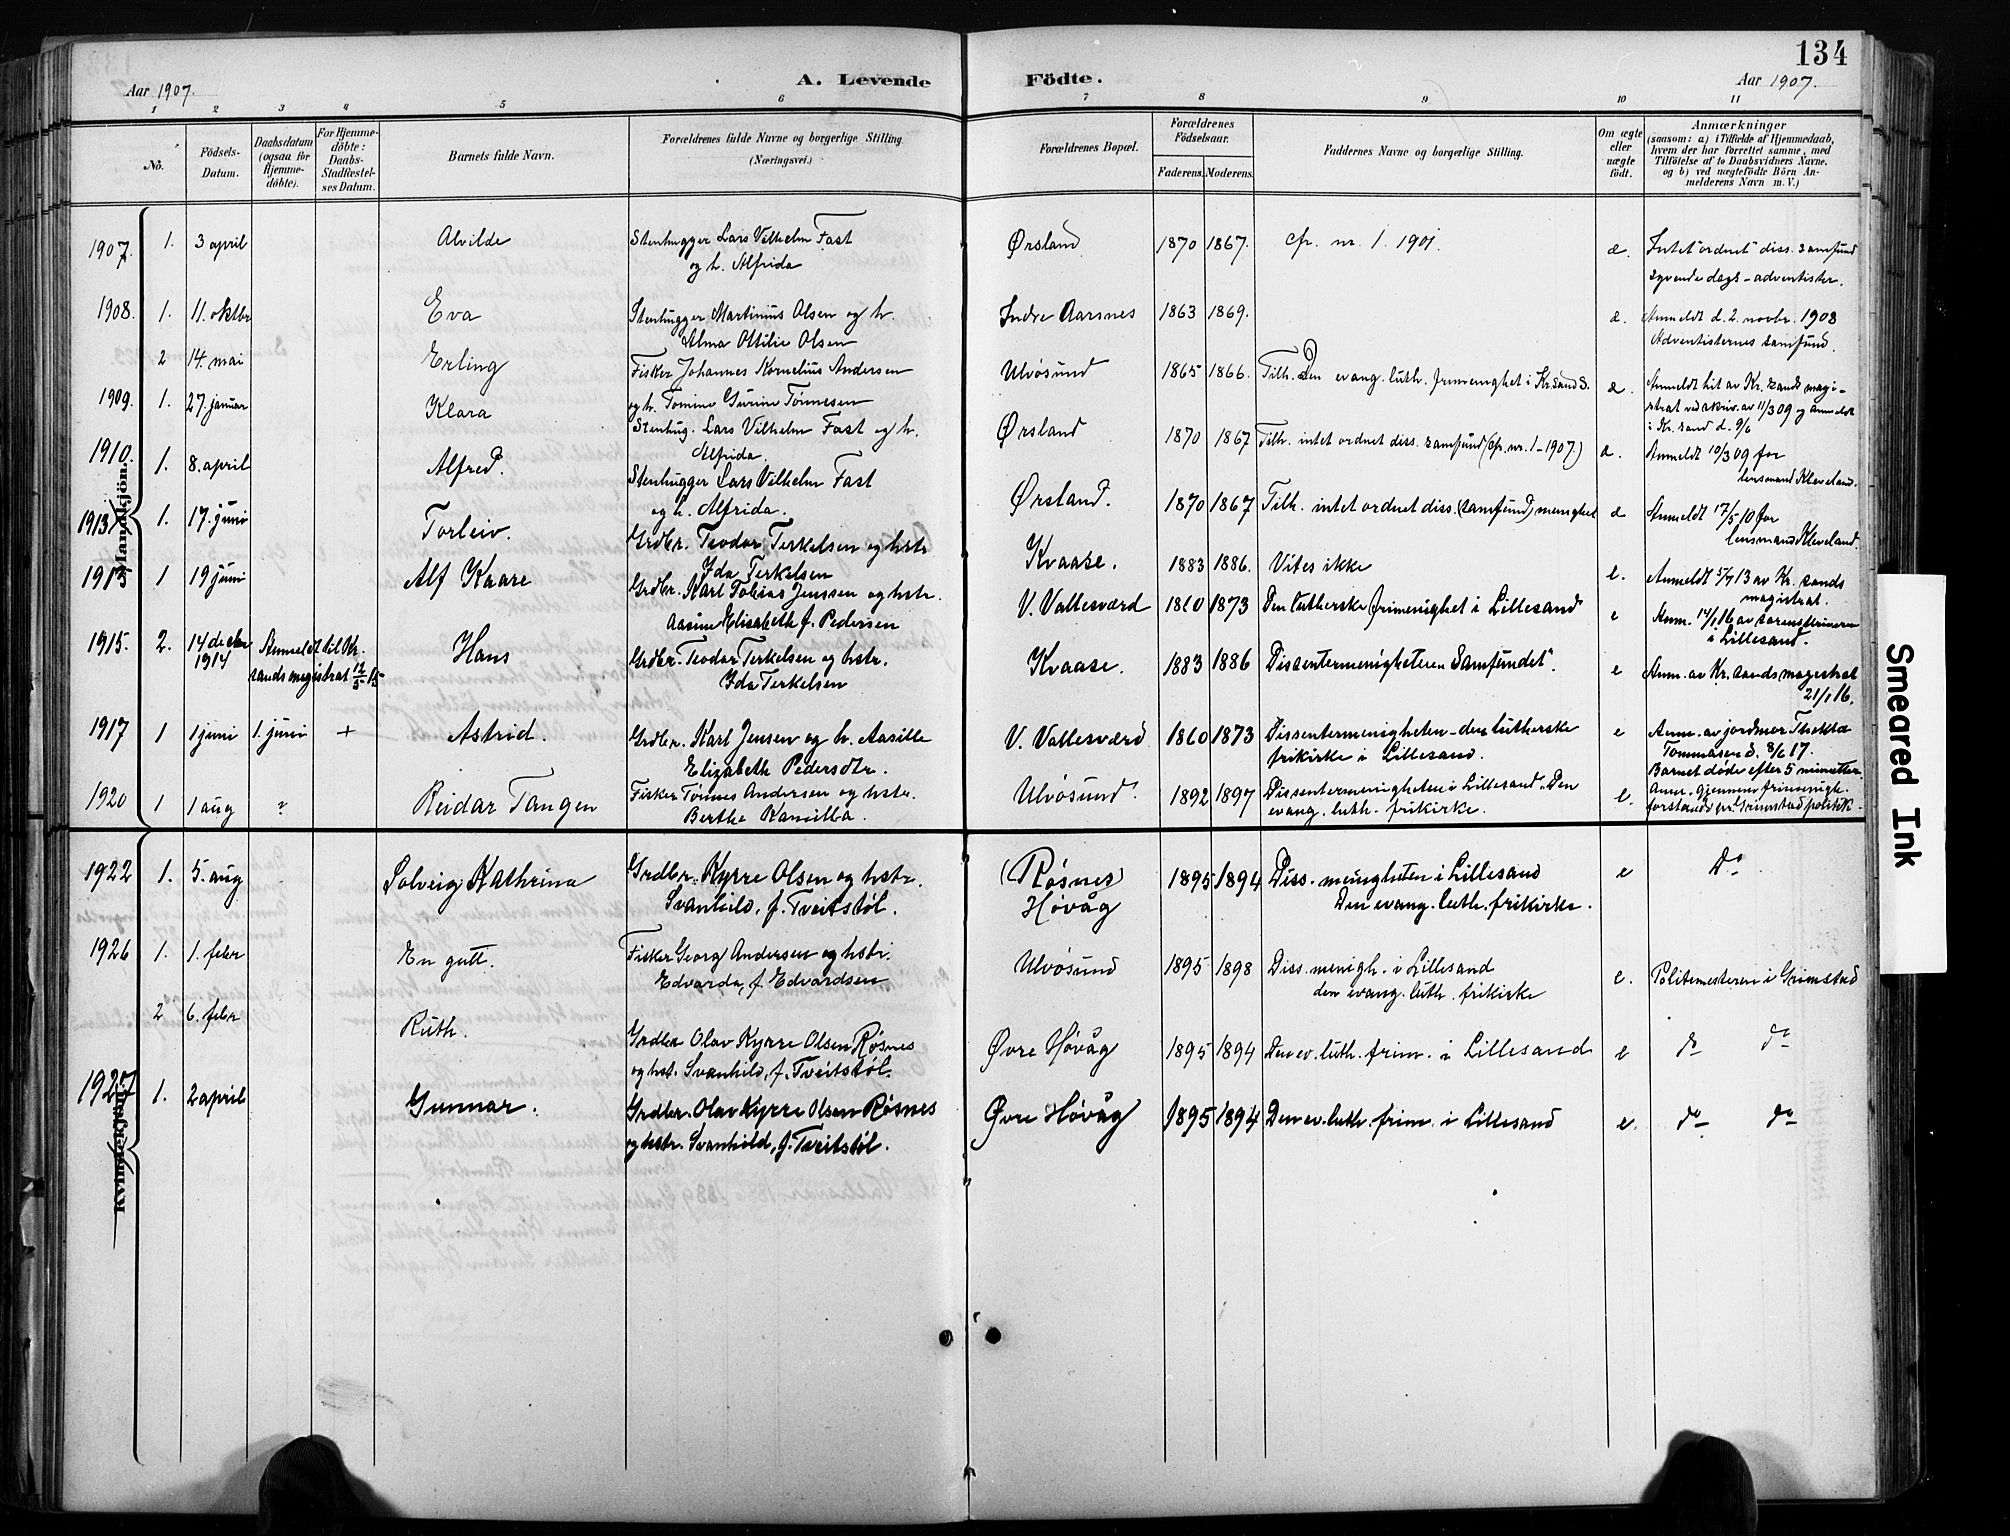 134
Aar 1907.
A. Levende
Födte.
Aar 1907.
1 2 3 4 5 6 7 8 9 10 11
No.
Födsels-
Datum.
Daabsdatum
(ogsaa for
Hjemme-
döbte).
For Hjemme-
döbte:
Daabs-
Stadfæstel-
ses Datum.
Barnets fulde Navn.
Forældrenes fulde Navne og borgerlige Stilling
(Næringsvei.)
Forældrenes Bopæl.
Forældrenes
Födselsaar.
Faderens. Moderens.
Faddernes Navne og borgerlige Stilling.
Om ægte
eller
uægte
födt.
Anmærkninger
(saasom: a) i Tilfælde af Hjemmedaab,
hvem der har forrettet samme, med
Tilföielse af to Daabsvidners Navne.
og b) ved uægtefödte Börn An-
melderens Navn m. V.)
Mandkjön.
1907. 1. 3 april Alvilde Stenhugger Lars Vilhelm Fast Ørsland 1870 1867. cfr. nr. 1. 1901. æ. Intet "ordnet" diss. samfund
og h. Alfrida syvende dags-adventister.
1908. 1. 11. oktbr Eva Stenhugger Martinius Olsen og h. Indre Aarsnes 1863 1869. æ. Anmeldt d. 2. novbr. 1908
Alma Ottilie Olsen Adventisternes samfund.
2 14. mai Erling Fisker Johannes Kornelius Andersen Ulvøsund 1865 1866. Tilh. Den evang. luth. frimenighet i Kr.sand S. æ. Anmeldt hit av Kr.sands magi-
og h. Tomine Gurine Tønnesen strat ved skriv. av 11/3 09 og anmeldt
i Kr.sand d. 9/6
1909. 1. 27. januar Klara Stenhug. Lars Vilhelm Fast og h. Ørsland 1870 1867 Tilh. intet ordnet diss. samfund (cfr. nr. 1-1907.) æ. Anmeldt 10/3 09 for
Alfrida. lensmand Kleveland.
1910. 1. 8. april Alfred. Stenhugger Lars Vilhelm Fast Ørsland. 1870 1867 Tilh. intet ordnet diss. (samfund) menighet æ Anmeldt 17/5 10 for
og h. Alfrida. lensmand Kleveland.
1913 1. 17. juni Torleiv. Grdbr. Teodor Terkelsen og hstr Kvaase. 1883 1886. Vites ikke e. Anmeldt 5/7 13 av Kr.sands
Ida Terkelsen magistrat.
1915 1 19 juni Alf Kaare Grdbr. Karl Tobias Jenssen og hstr. V. Vallesværd 1860 1873 Den lutherske frimenighet i Lillesand e Anm. 14/1 16 av sorenskriveren
Aasine Elisabeth f. Pedersen i Lillesand.
1915. 2. 14 decbr
1914 Anmeldt til Kr.
sands magistrat 12/5 15 Hans Grdbr. Teodor Terkelsen og hstr. Kvaase. 1883 1886 Dissentermenigheten Samfundet". e Anm. av Kr.sands magistrat
Ida Terkelsen 21/1 16.
1917 1 1 juni 1. juni + Astrid. Grdbr. Karl Jensen og h. Aasille V. Vallesværd 1860 1873 Dissentermenigheten - den lutherske e Anm. av jordmor Thekla
Elizabeth Pedersdtr. frikirke i Lillesand. Tommasen d. 8/6 17.
Barnet døde efter 5 minutter.
1920 1 1 aug ? Reidar Tangen Fisker Tønnes Andersen og hstr. Ulvøsund. 1892 1897 Dissentermenigheten i Lillesand. Den e. Anm. gjennem frimenigh.
Berthe Kamilla. evang. luth. frikirke. forstander pr. Grimstad politik.
Kvindekjön.
1922 1. 5. aug Solveig Kathrina Grdbr. Kyrre Olsen og hstr. (Røsnes) 1895 1894 Diss. menigheten i Lillesand e Do
Svanhild, f. Tveitstøl. Høvåg Den evang. luth. frikirke.
1926 1. 1. febr En gutt. Fisker Georg Andersen og hstr. Ulvøsund 1895 1898 Diss. menigh. i Lillesand e. Politimesteren i Grimstad
Edvarda, f. Edvardsen den evang. luth. frikirke
2 6. febr Ruth. Grdbr Olav Kyrre Olsen Røsnes Øvre Høvåg 1895 1894 Den ev. luth. frim. i Lillesand e do do
og hst. Svanhild, f. Tveitstøl.
1927 1. 2 april Gunnar. Grdbr. Olav Kyrre Olsen Røsnes Øvre Høvåg 1895 1894 Den ev. luth. frim. i Lillesand e. do do
og hstr. Svanhild, f. Tveitstøl.
Smeared Ink